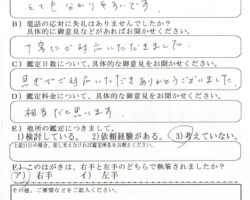 とてもわかりやすいです
B) 電話の応対に失礼はありませんでしたか？
具体的に御意見などがあればお聞かせください。
丁寧にご対応いただきました。
C) 鑑定日数について、具体的に御意見をお聞かせください。
急ぎでご対応いただきありがとうございました。
D) 鑑定料金について、具体的な御意見をお聞かせください。
相当だと思います
E) 他所の鑑定につきまして。
1)検討している。 2)依頼経験がある。 3)考えていない。
F) このはがきは、右手と左手のどちらで執筆されましたか？
ア) 右手 イ) 左手
その他、ご要望などをご記入ください。